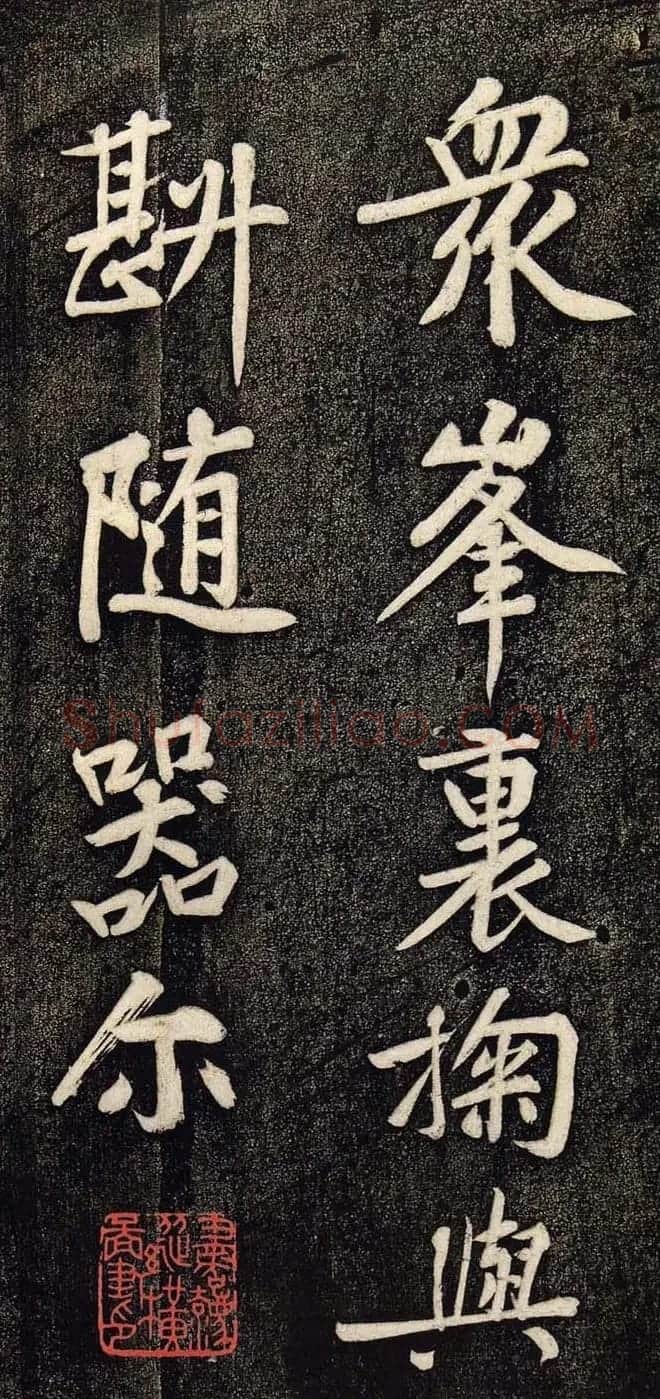 眾峯裏掬與
斟随器尔
Shufaziliao.COM